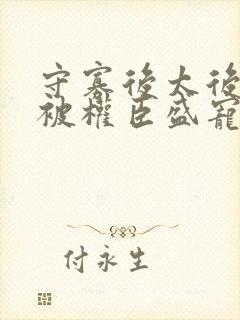 守寡後太後
被權臣盛寵
付永生